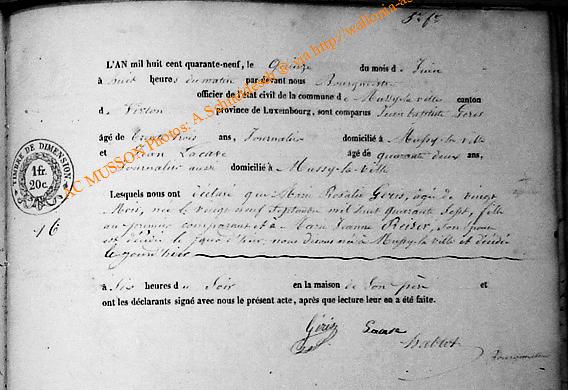 5e fe
L'AN mil huit cent quarante-neuf, le Quinze du mois de Juin
à huit heures du matin par devant nous Bourgmestre
officier de l'état civil de la commune de Mussy-la-ville canton
de Virton province de Luxembourg, sont comparus Jean Baptiste Goris
âgé de Trente trois ans, Journalier domicilié à Mussy-la-ville
et Jean Lacave âgé de quarante deux ans,
Journalier aussi domicilié à Mussy-la-ville
Lesquels nous ont déclaré que Marie Rosalie Goris, âgée de vingt
Mois, née le vingt neuf Septembre mil huit quarante Sept, fille
au premier comparant et à Marie Jeanne Reiser, Son épouse
est décédée le jour d'hier, nous demeurant à Mussy-la-ville et décédée
le jour d'hier
à Six heures du Soir en la maison de Son père et
ont les déclarants signé avec nous le présent acte, après que lecture leur en a été faite.
TIMBRE DE DIMENSION
1fr.
20c.
16
AC MUSSON Photos: A.Schmidt http://wallonia-as